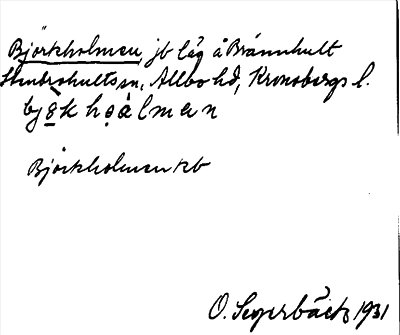 Björkholmen jb låg å Brännhult
Stenbrohults sn, Allbo hd, Kronobergs l.
bjö̱k họålmen
Björkholmen kb
O. Segerbäck 1931